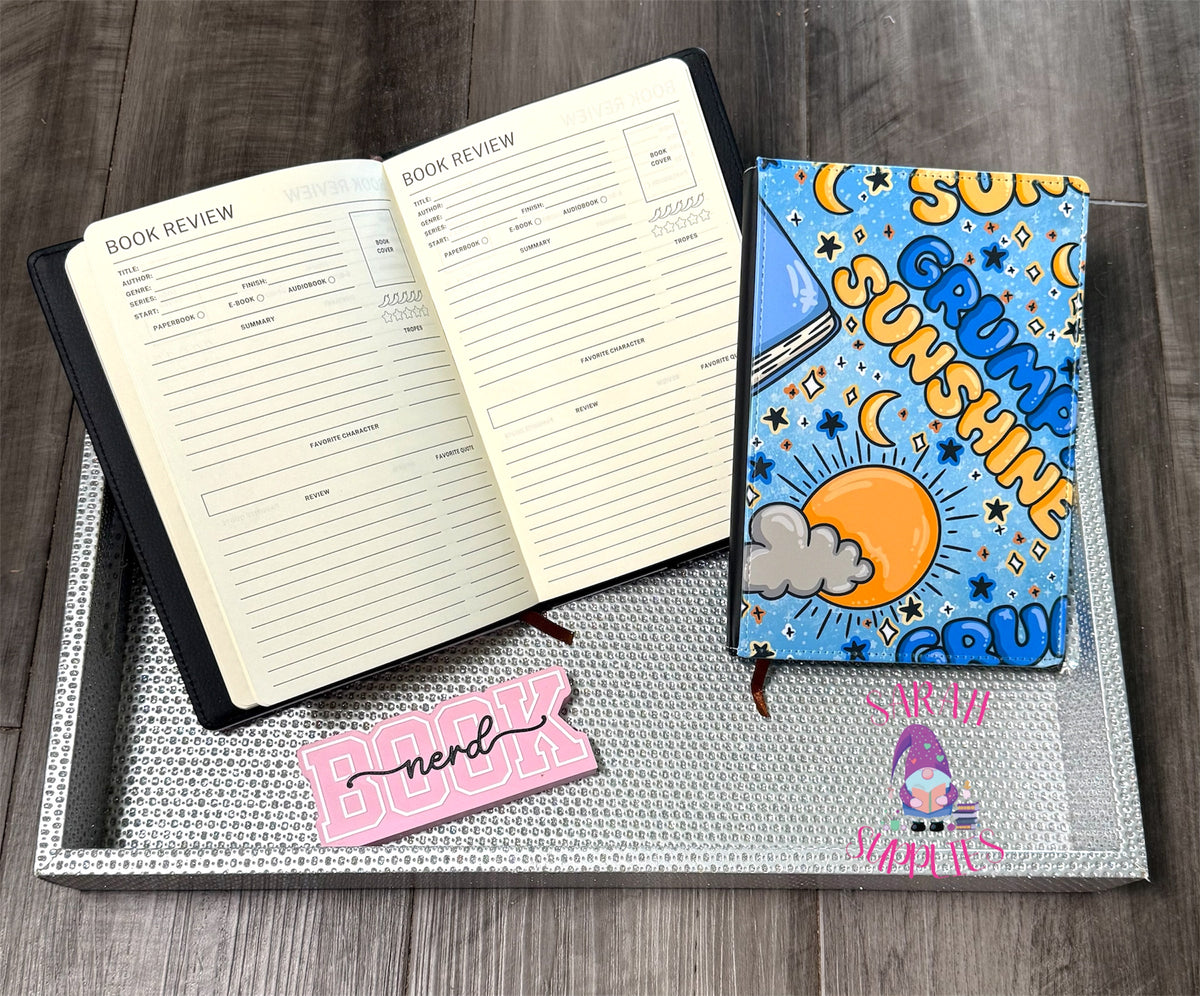 BOOK REVIEW
TITLE:
AUTHOR:
GENRE:
SERIES:
START:
FINISH:
PAPERBOOK
E-BOOK
AUDIOBOOK
BOOK
COVER
SUMMARY
TROPES
FAVORITE CHARACTER
REVIEW
FAVORITE QUOTE
BOOK REVIEW
TITLE:
AUTHOR:
GENRE:
SERIES:
START:
FINISH:
PAPERBOOK
E-BOOK
AUDIOBOOK
BOOK
COVER
SUMMARY
TROPES
FAVORITE CHARACTER
REVIEW
FAVORITE QUO
SUN
GRUMP
SUNSHINE
GRU
BOOK
nerd
SARAH
SUPPLIES